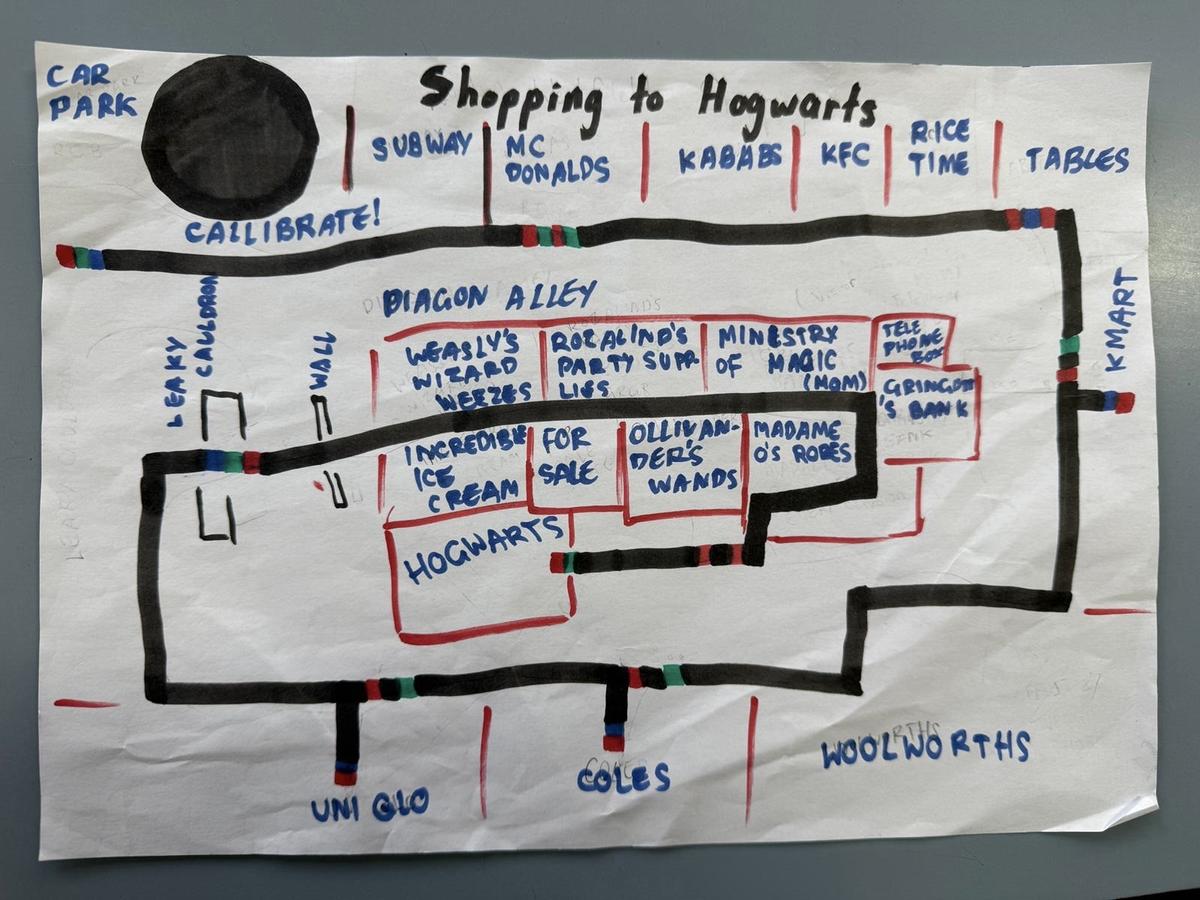 CAR
PARK
Shopping to Hogwarts
SUBWAY
MC
DONALDS
KABABS
KFC
RICE
TIME
TABLES
CALLIBRATE!
KMART
DIAGON ALLEY
LEAKY
CAULDRON
WALL
WEASLY'S
WIZARD
WEEZES
ROZALIND'S
PARTY SUPP
LIES
MINESTRY
OF MAGIC
(MOM)
TELE
PHONE
BOX
GRINGOTT
'S BANK
INCREDIBLE
ICE
CREAM
FOR
SALE
OLLIVAN-
DER'S
WANDS
MADAME
O'S ROBES
HOGWARTS
UNI QLO
COLES
WOOLWORTHS